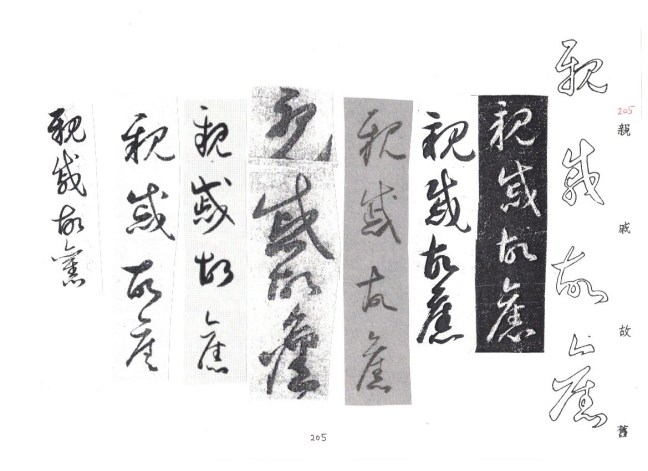 205
親戚故舊
親戚故舊
親戚故舊
親戚故舊
親戚故舊
親戚故舊
親戚故舊
親戚故舊
親戚故舊
205